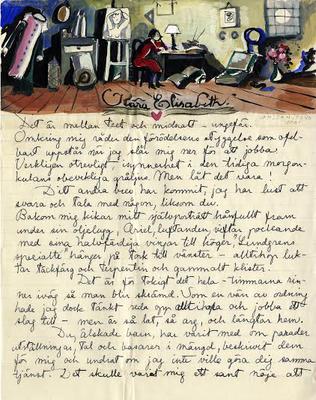 Kära Elisabeth.
Det är mellan tect och midnatt - ungefär.
Omkring mig råder den förödelsens styggelse som
uppstår när jag slår mig ner för att jobba.
Verkligen otrevligt, isynnerhet i den tidiga morgon-
kulans obevekliga gråljus. Men låt det vara!
Ditt andra brev har kommit, jag har lust att
svara och tala med någon, liksom du.
Bakom mig kikar mitt självporträtt hånfullt fram
under sin oljelugg, Ariel, luftanden, viftar
med sina halvfärdiga vingar till höger, Lindgrens
specialité hänger på tork till vänster - alltihop luk-
tar täckfärg och terpentin och gammalt klister.
Det är för tokigt det hela - timmarna rin-
ner iväg så man blir skrämd. Som en vän av ordning
hade jag dock tänkt reda upp allt detta och jobba ett
slag till - men är så lat, så arg, och längtar hem.
Du, älskade barn, har varit med om parader,
utställningar, tal och basarer i mängd, beskrivit dem
för mig och undrat om jag inte ville göra dig samma
tjänst. Det skulle varit mig ett sant nöje att